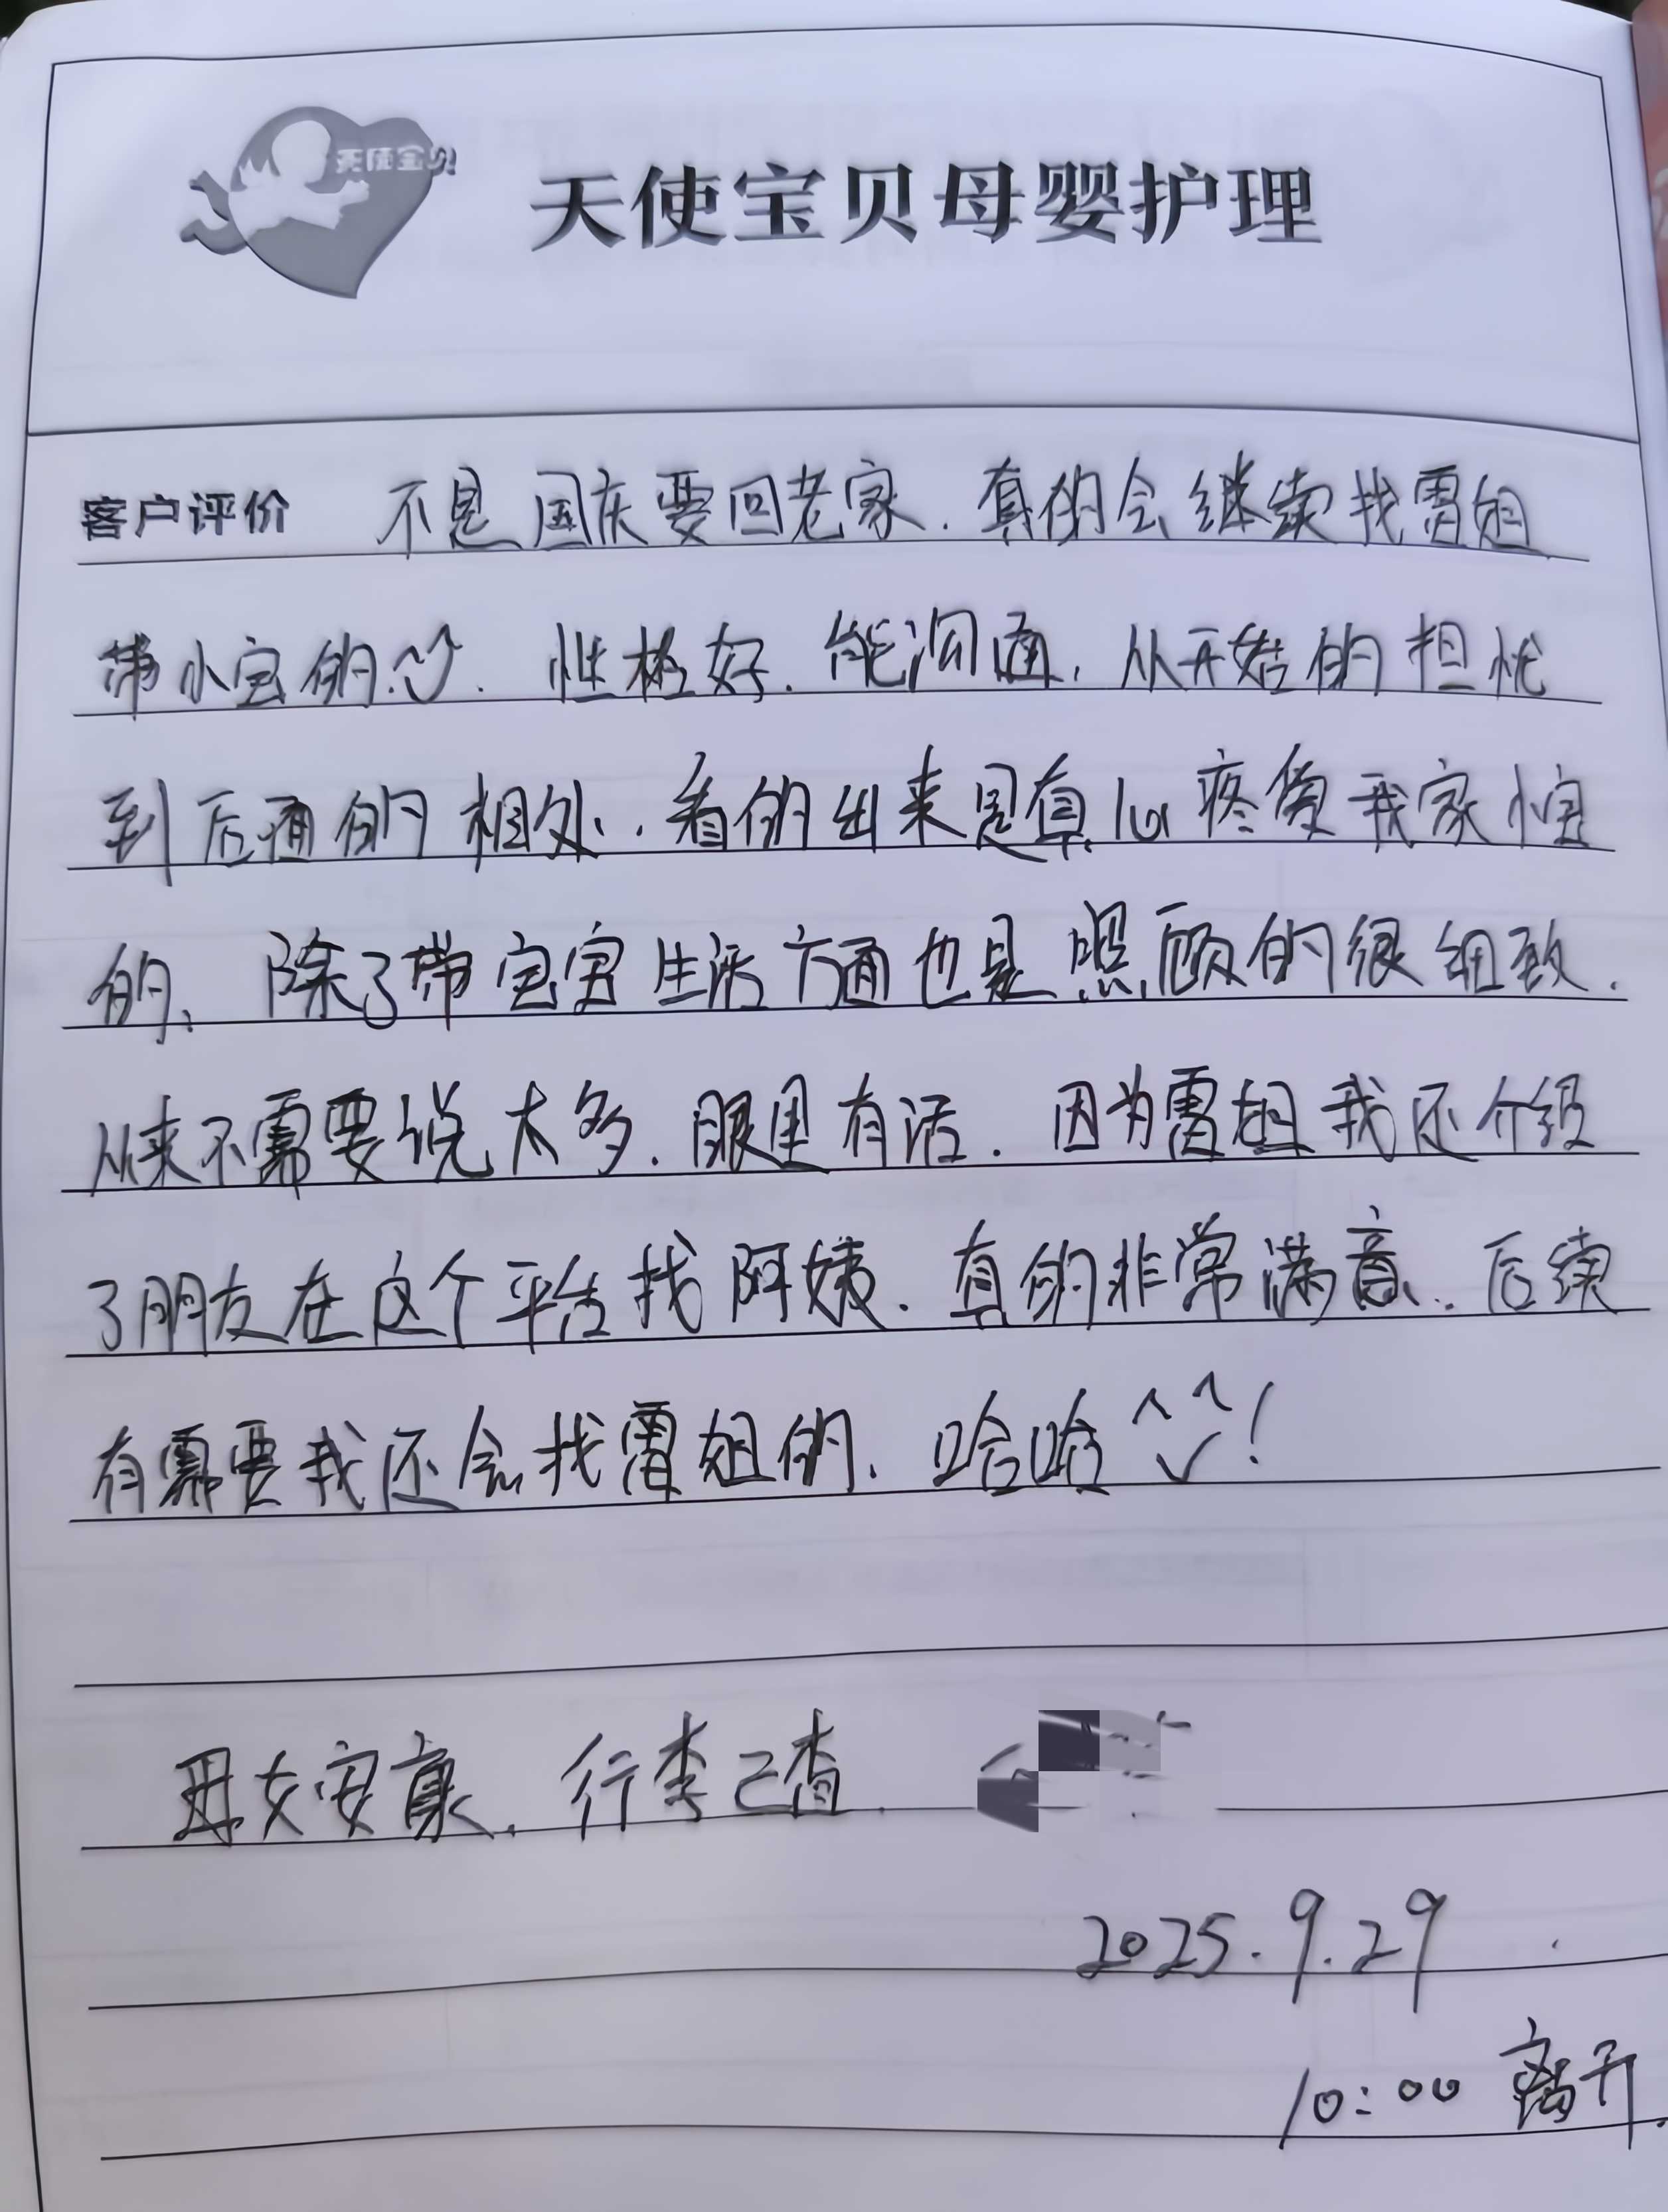 天使宝贝
天使宝贝母婴护理
客户评价 不是国庆要回老家.真的会继续找雷姐
带小宝的.性格好.能沟通,从开始的担忧
到后面的相处,看的出来是真心疼爱我家小宝
的、除了带宝宝生活方面也是照顾的很细致.
从来不需要说太多.眼里有活.因为雷姐我还介绍
了朋友在这个平台找阿姨.真的非常满意.后续
有需要我还会找雷姐的.哈哈^^!
母女安康.行李已查.
2025.9.29
10:00离开.